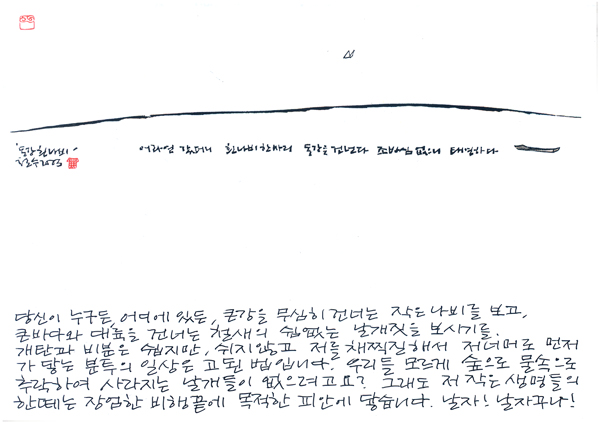 어라연 갔더니 흰나비 한마리 동강을 건넌다 조바심 없으니 태연하다
'동강 흰나비'
철수 2003
당신이 누구든, 어디에 있든, 큰강을 무심히 건너는 작은나비를 보고,
큰바다와 대륙을 건너는 철새의 쉼없는 날개짓을 보시기를.
개탄과 비분은 쉽지만, 쉬지않고 저를 채찍질해서 저너머로 먼저
가 닿는 분투의 일상은 고된 법입니다. 우리들 모르게 숲으로 물속으로
추락하여 사라지는 날개들이 없으려고요? 그래도 저 작은 생명들의
한떼는 장엄한 비행끝에 목적한 피안에 닿습니다. 날자! 날자꾸나!